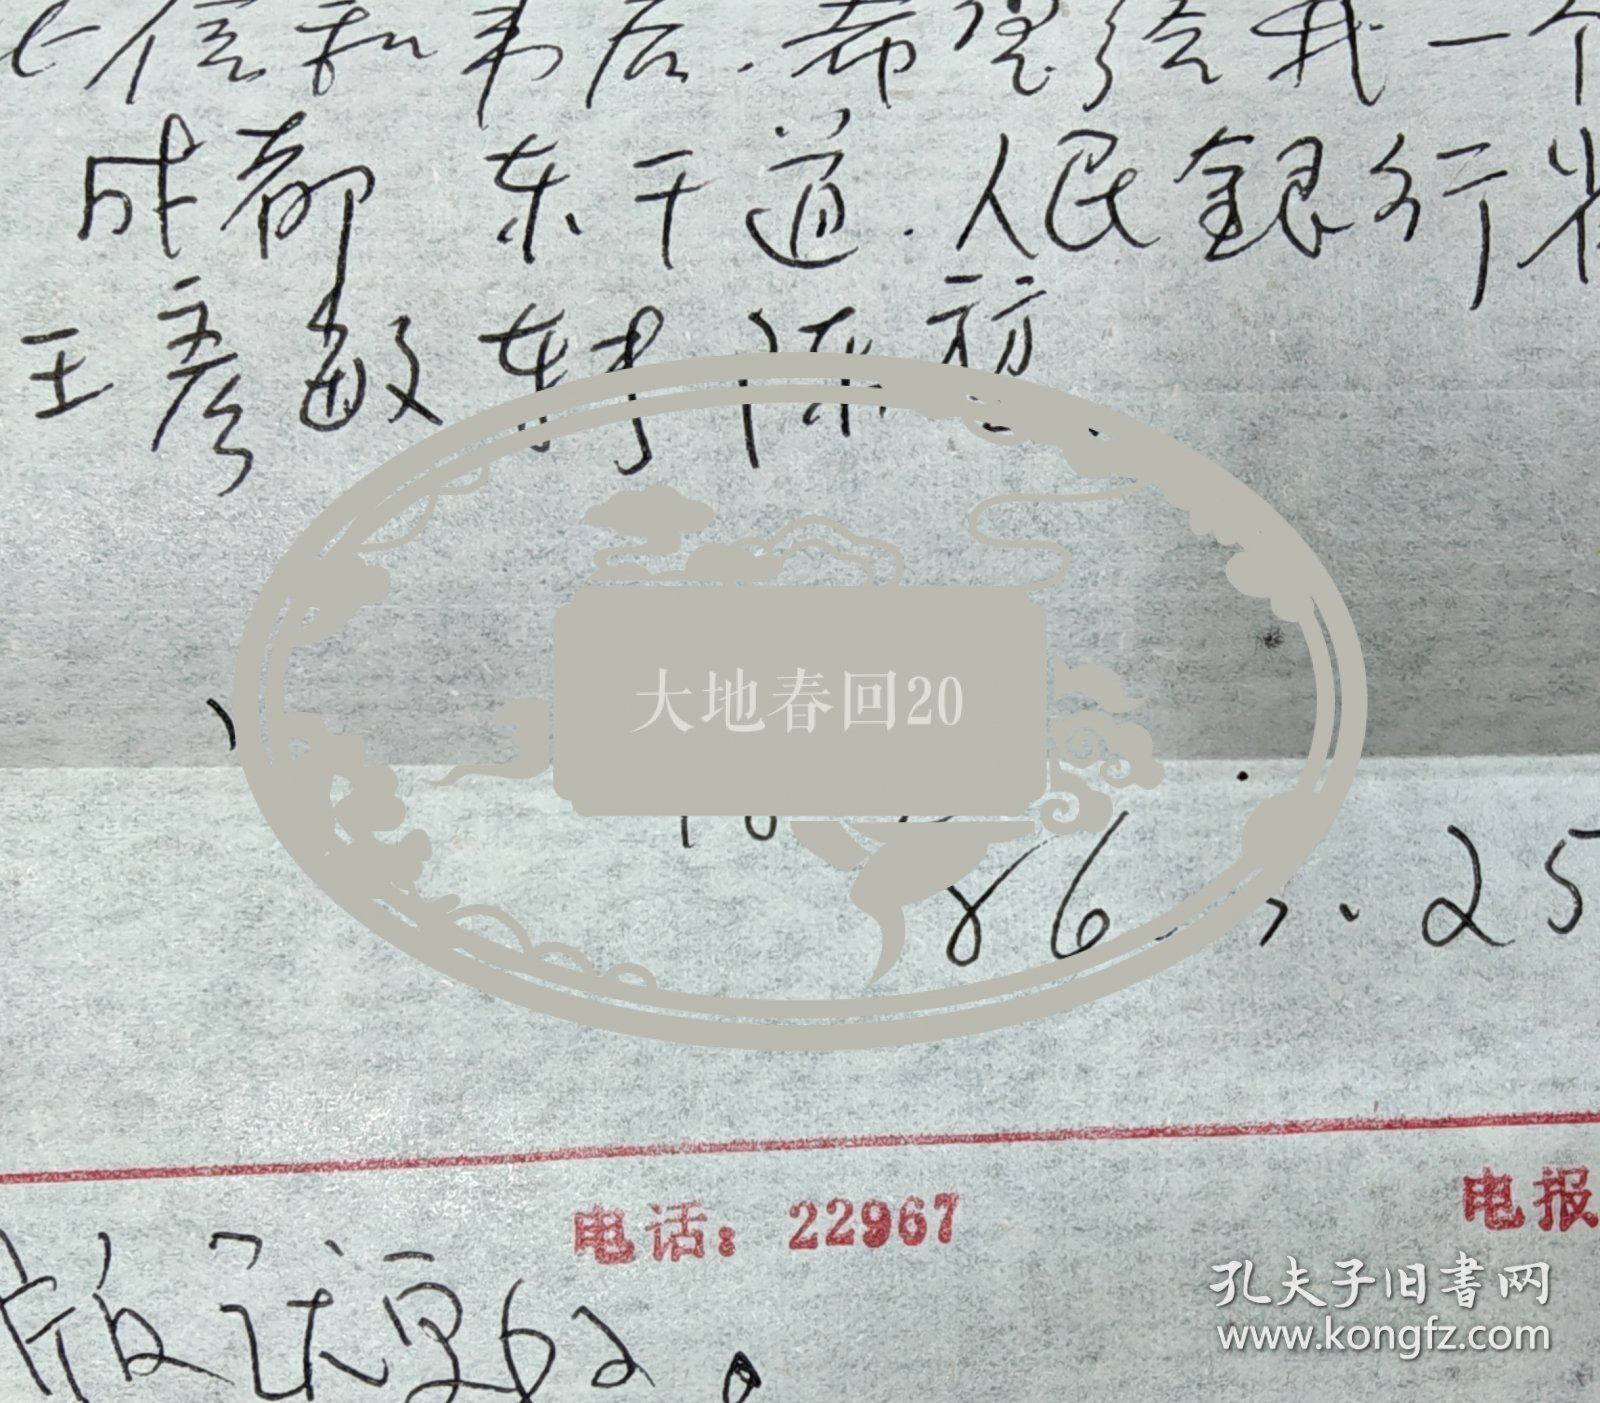 信和书后.希望给我一个
成都 东干道.人民銀行省
王彦敏转陈
大地春回20
86. .25
电话：22967
电报
版 更好。
孔夫子旧書网
www.kongfz.com